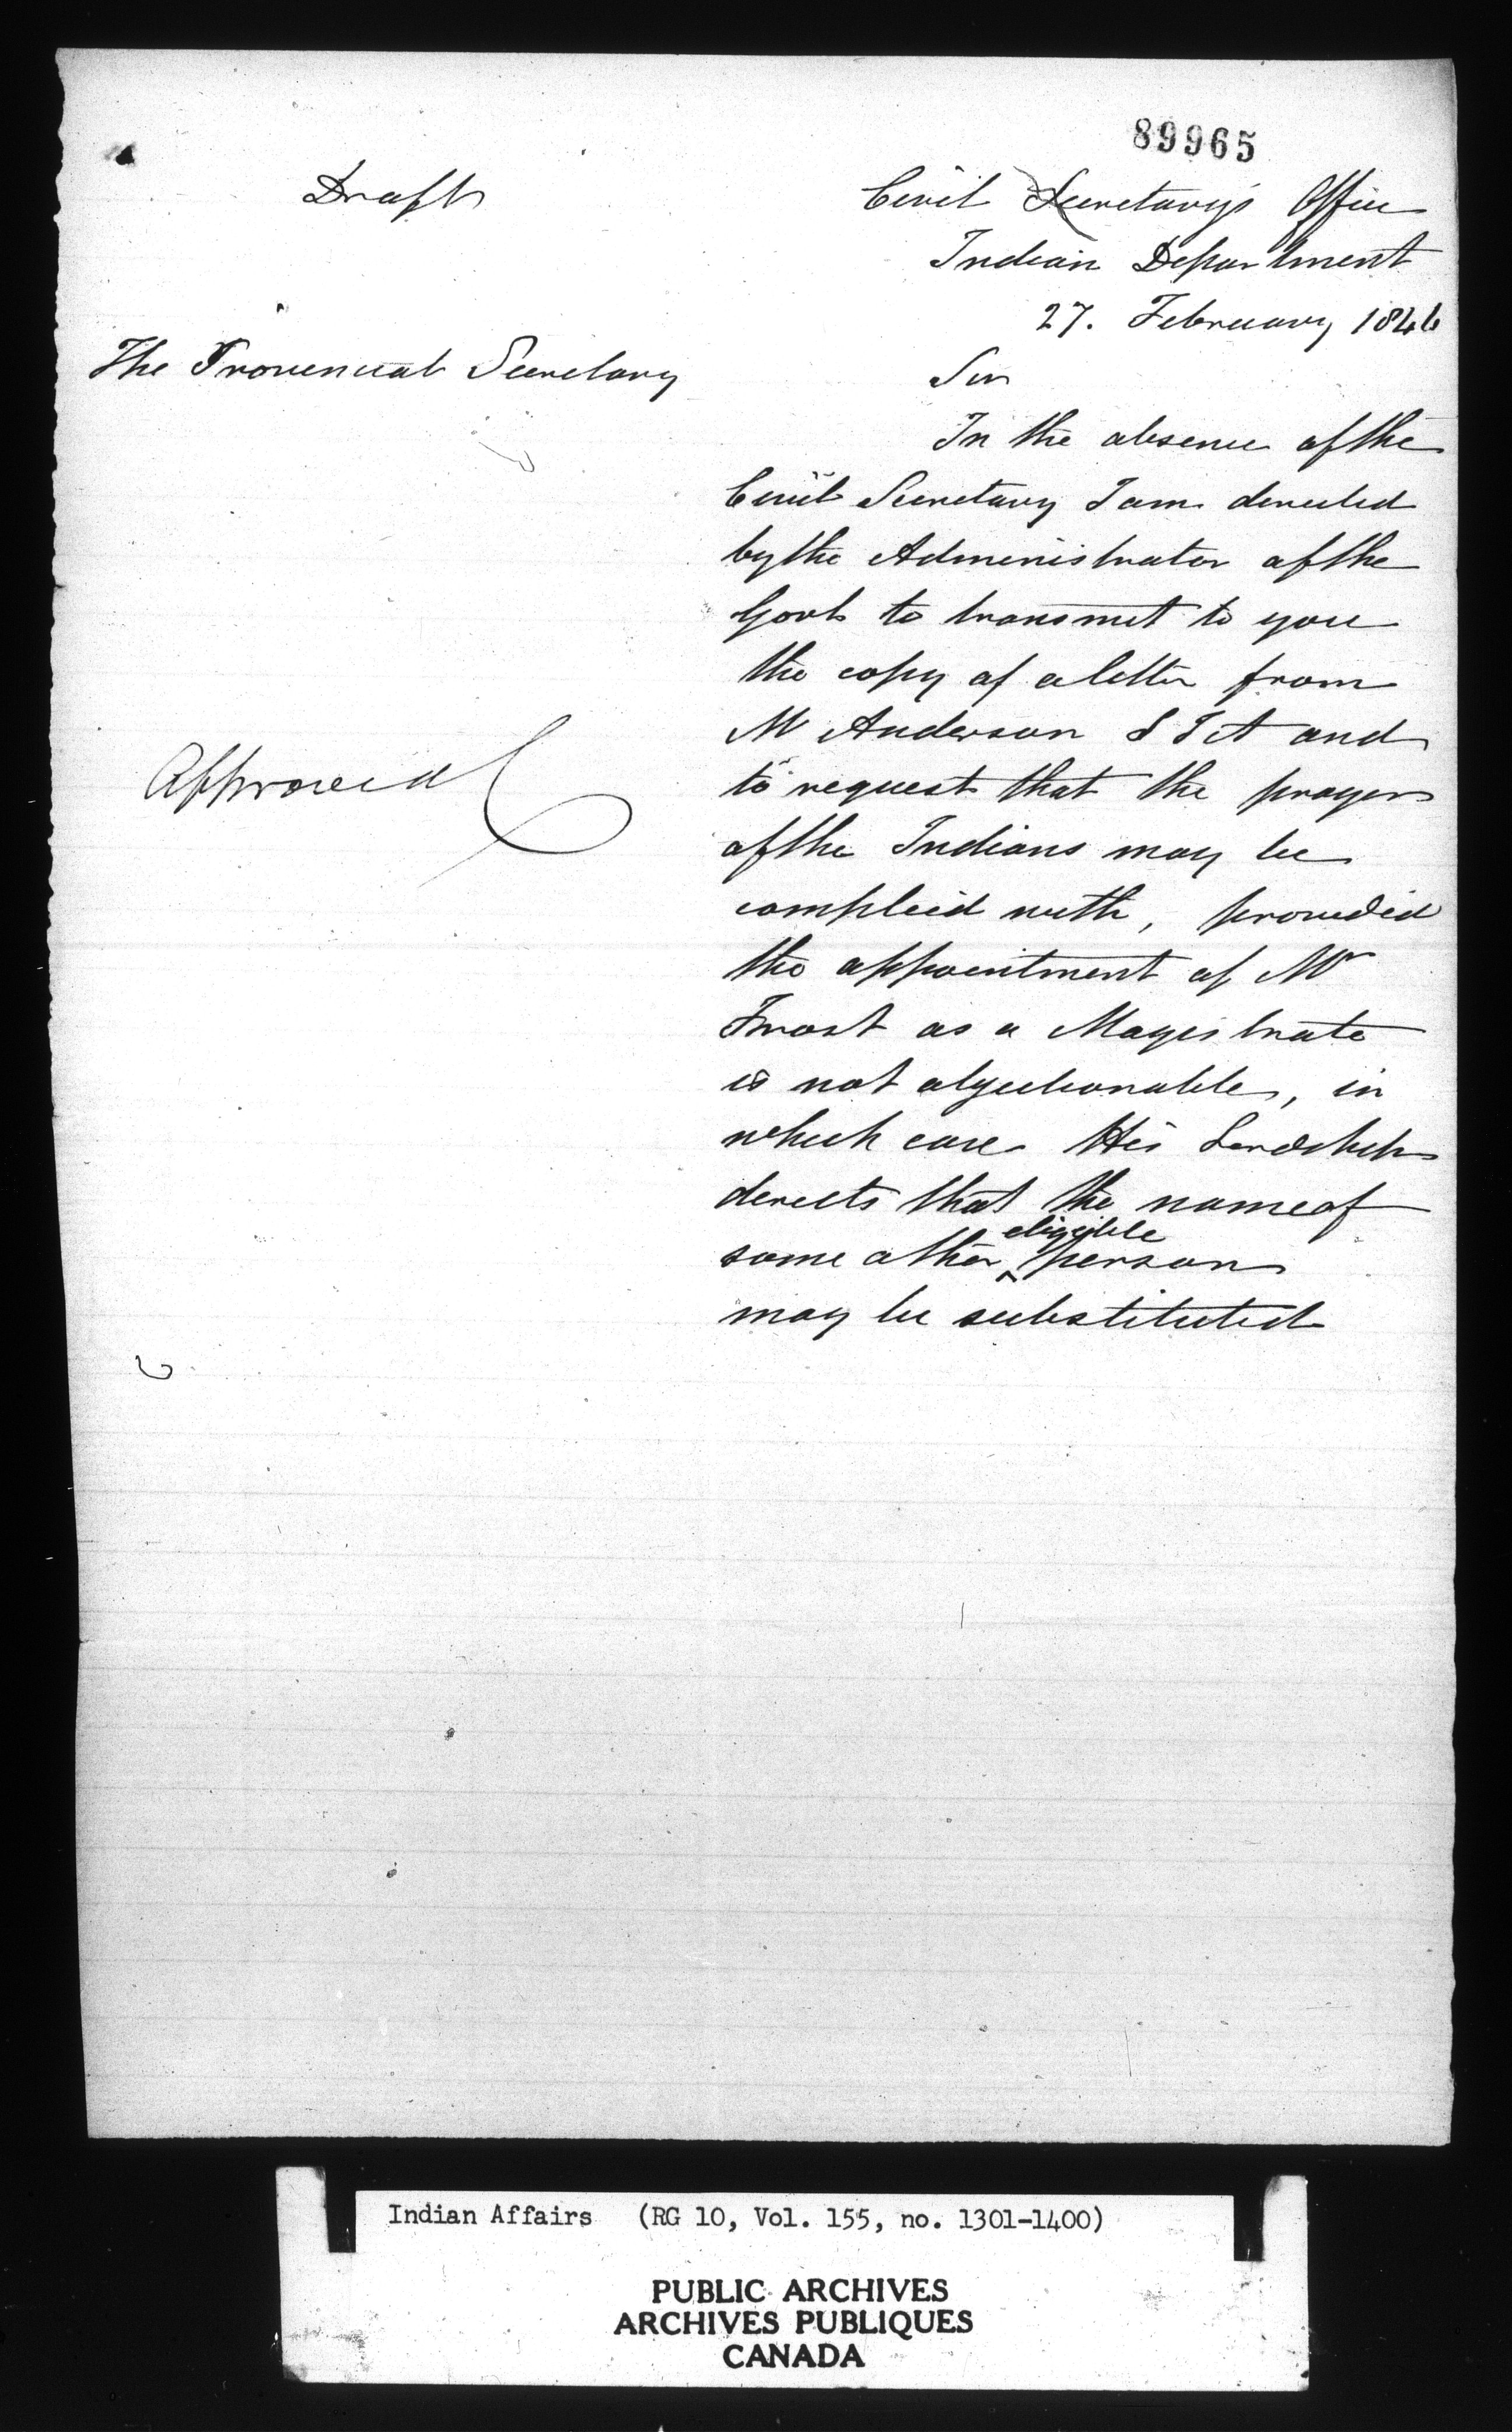 89965
Draft
Civil Secretary's Office
Indian Department
27. February 1846
The Provincial Secretary
Sir
In the absence of the
Civil Secretary I am directed
by the Administrator of the
Govt to transmit to you
the copy of a letter from
Mr Anderson S I A and
to request that the prayer
of the Indians may be
complied with, provided
the appointment of Mr
Frost as a Magistrate
is not objectionable, in
which case His Lordship
directs that the name of
some other eligible person
may be substituted
Approved C
Indian Affairs (RG 10, Vol. 155, no. 1301-1400)
PUBLIC ARCHIVES
ARCHIVES PUBLIQUES
CANADA